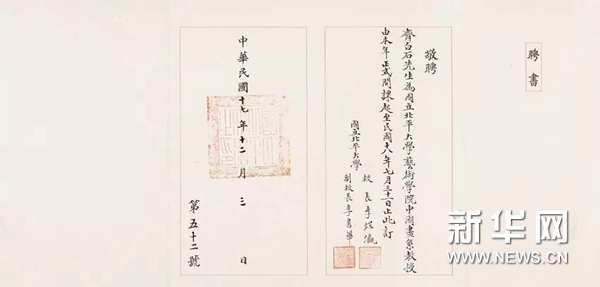 聘書
敬聘
齊白石先生為國立北平大學藝術學院中國畫系教授
由本年正式開課起至民國十八年七月三十一日止此訂
國立北平大學
校長李煜瀛
副校長李書華
中華民國十七年十二月三日
第五十二號
新华网
WWW.NEWS.CN